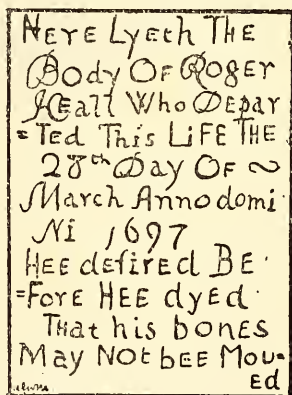 HERE LyEth THE
Body OF Roger
HEall Who Depar
=Ted This LiFE THE
28th Day OF ~
March Annodomi
Ni 1697
HEE desired BE·
=Fore HEE dyed·
THat his bones
May Not bEE Mou=
Ed